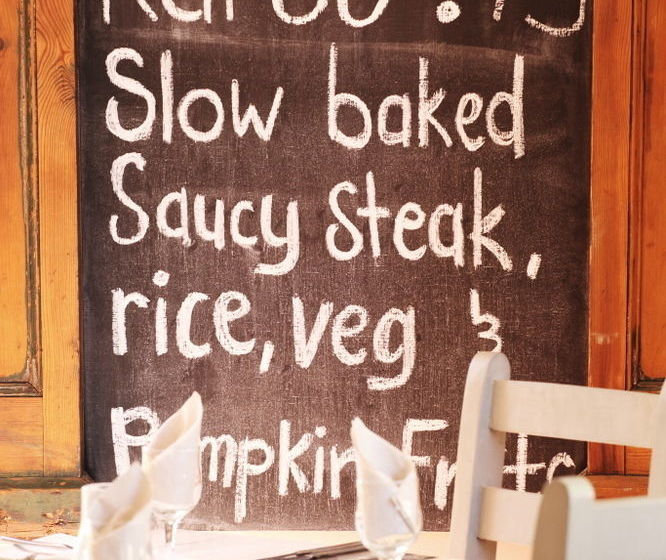 Slow baked
Saucy Steak,
rice, veg &
Pumpkin